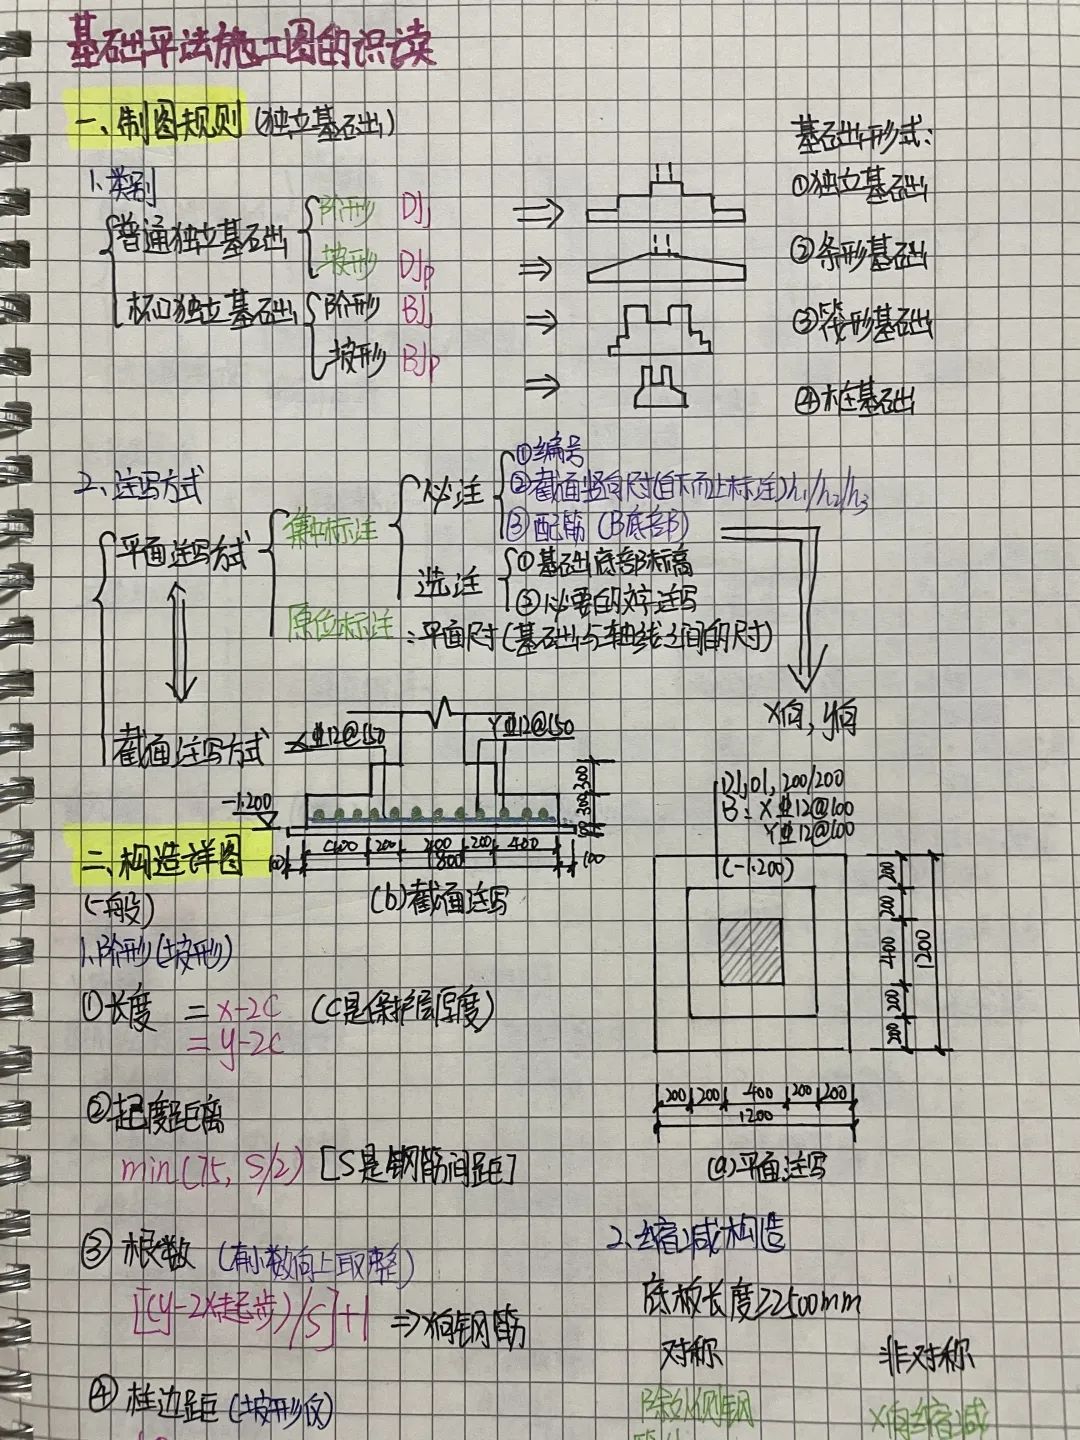 基础平法施工图的识读
一、制图规则(独立基础)
基础形式:
1、类别
①独立基础
普通独立基础
阶形 DJj
坡形 DJp
②条形基础
杯口独立基础
阶形 BJj
坡形 BJp
③筏形基础
④桩基础
2、注写方式
平面注写方式
集中标注
必注
①编号
②截面竖向尺寸(自下而上标注)h1/h2/h3
③配筋 (B底部)
选注
①基础底部标高
②必要的文字注写
原位标注:平面尺寸(基础与轴线之间的尺寸)
X向,y向
截面注写方式
X⌽12@150
Y⌽12@150
-1.200
300
300
100
400 200 400 200 400
800
100
100
(b)截面注写
DJj01,200/200
B:X⌽12@100
Y⌽12@100
(-1.200)
200
200
400
200
200
1200
200 200 400 200 200
1200
(a)平面注写
二、构造详图
(一般)
1、阶形(坡形)
①长度 =x-2c (C是保护层厚度)
=y-2c
②起度距离
min(75, S/2) [S是钢筋间距]
③根数 (有小数向上取整)
[(y-2×起步)/S]+1 ⇒X向钢筋
④柱边距(坡形仅)
2、缩减构造
底板长度≥2500mm
对称 非对称
除外侧钢 X向缩减